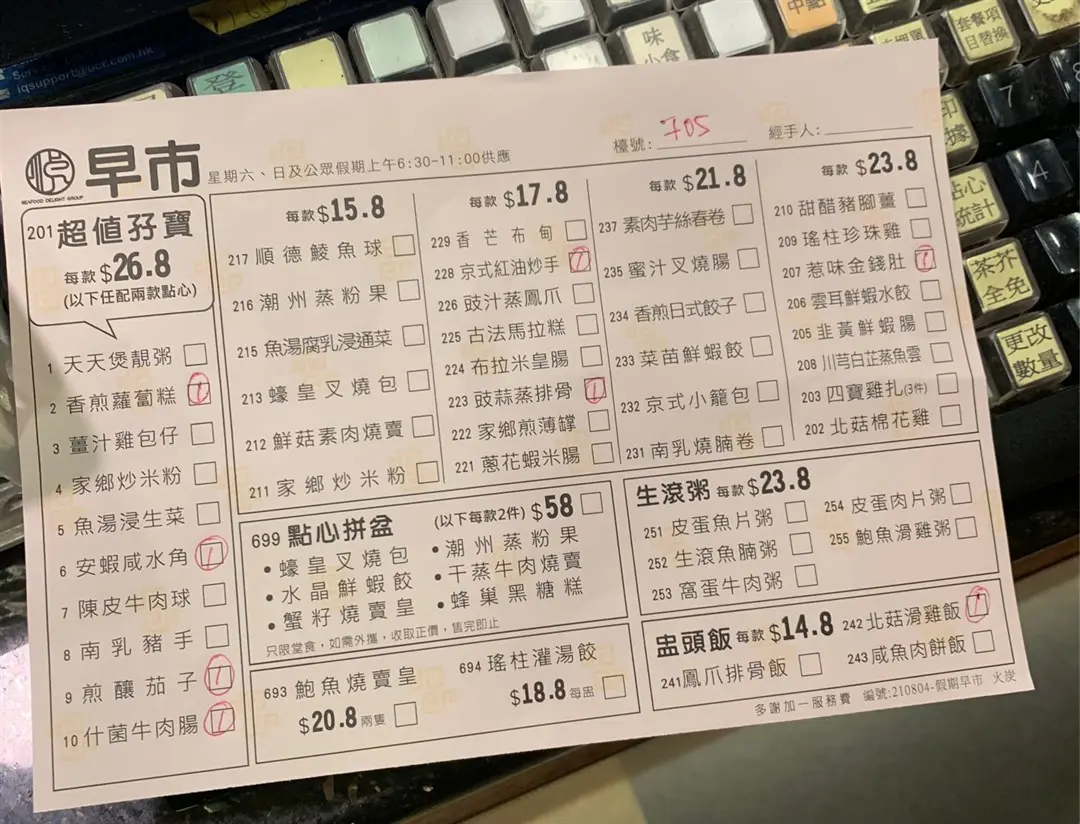 iqsupport@ucr.com.hk
登
味
小食
中點
套餐項
目替換
7
4
點心
統計
茶芥
全免
更改
數量
早市
SEAFOOD DELIGHT GROUP
星期六、日及公眾假期上午6:30-11:00供應
檯號: 705
經手人:
201 超值孖寶
每款 $26.8
(以下任配兩款點心)
1 天天煲靚粥
2 香煎蘿蔔糕 1
3 薑汁雞包仔
4 家鄉炒米粉
5 魚湯浸生菜
6 安蝦咸水角 1
7 陳皮牛肉球
8 南乳豬手
9 煎釀茄子 1
10 什菌牛肉腸 1
每款 $15.8
217 順德鯪魚球
216 潮州蒸粉果
215 魚湯腐乳浸通菜
213 蠔皇叉燒包
212 鮮菇素肉燒賣
211 家鄉炒米粉
每款 $17.8
229 香芒布甸
228 京式紅油炒手 1
226 豉汁蒸鳳爪
225 古法馬拉糕
224 布拉米皇腸
223 豉蒜蒸排骨 1
222 家鄉煎薄罉
221 蔥花蝦米腸
每款 $21.8
237 素肉芋絲春卷
235 蜜汁叉燒腸
234 香煎日式餃子
233 菜苗鮮蝦餃
232 京式小籠包
231 南乳燒腩卷
每款 $23.8
210 甜醋豬腳薑
209 瑤柱珍珠雞
207 惹味金錢肚 1
206 雲耳鮮蝦水餃
205 韭黃鮮蝦腸
208 川芎白芷蒸魚雲
203 四寶雞扎(3件)
202 北菇棉花雞
699 點心拼盆
(以下每款2件) $58
• 蠔皇叉燒包
• 水晶鮮蝦餃
• 蟹籽燒賣皇
• 潮州蒸粉果
• 干蒸牛肉燒賣
• 蜂巢黑糖糕
只限堂食，如需外攜，收取正價，售完即止
693 鮑魚燒賣皇
$20.8 兩隻
694 瑤柱灌湯餃
$18.8 每盅
生滾粥 每款 $23.8
251 皮蛋魚片粥
252 生滾魚腩粥
253 窩蛋牛肉粥
254 皮蛋肉片粥
255 鮑魚滑雞粥
盅頭飯 每款 $14.8
241 鳳爪排骨飯
242 北菇滑雞飯 1
243 咸魚肉餅飯
多謝加一服務費 編號:210804-假期早市 火炭